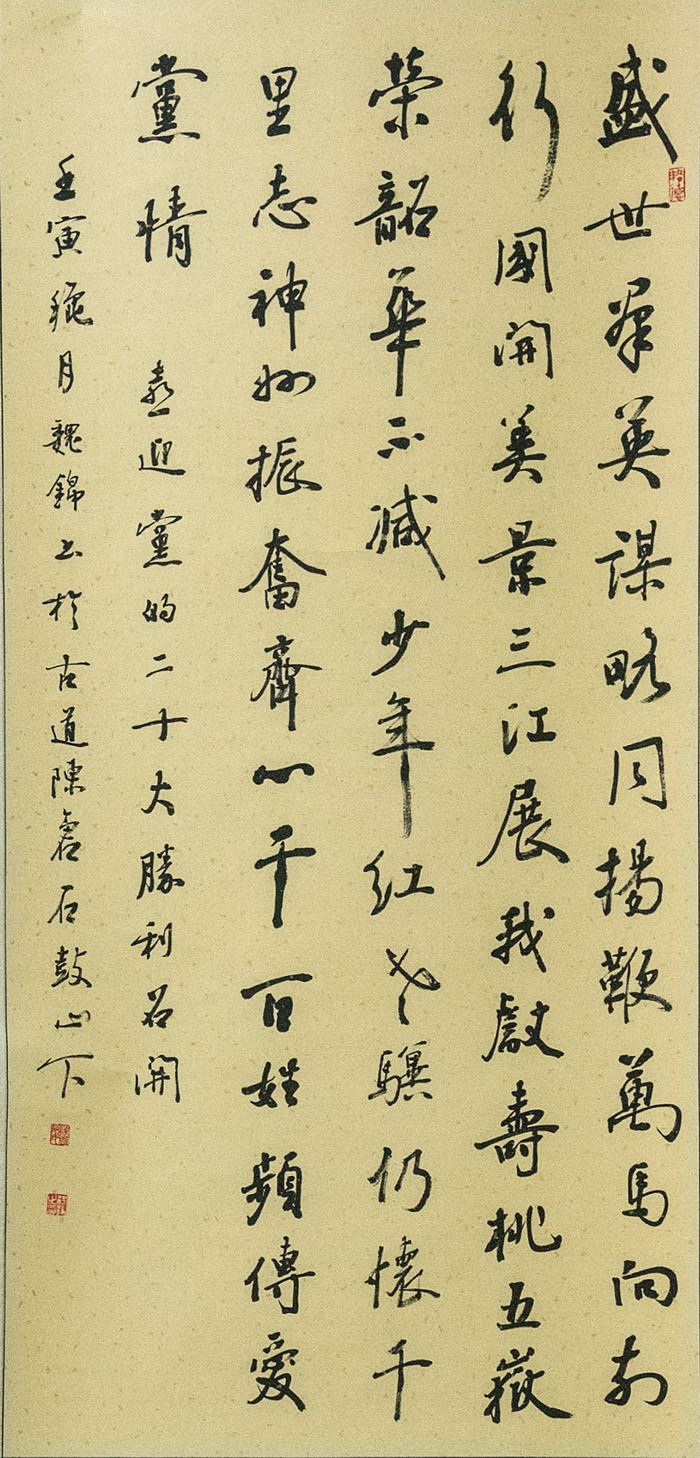 盛世羣英謀略同揚鞭萬馬向前
行國開美景三江展我獻壽桃五嶽
榮韶華不減少年紅老驥仍懷千
里志神州振奮齊心干百姓頻傳愛
黨情 喜迎黨的二十大勝利召開
壬寅穐月魏錦書於古道陳倉石鼓山下